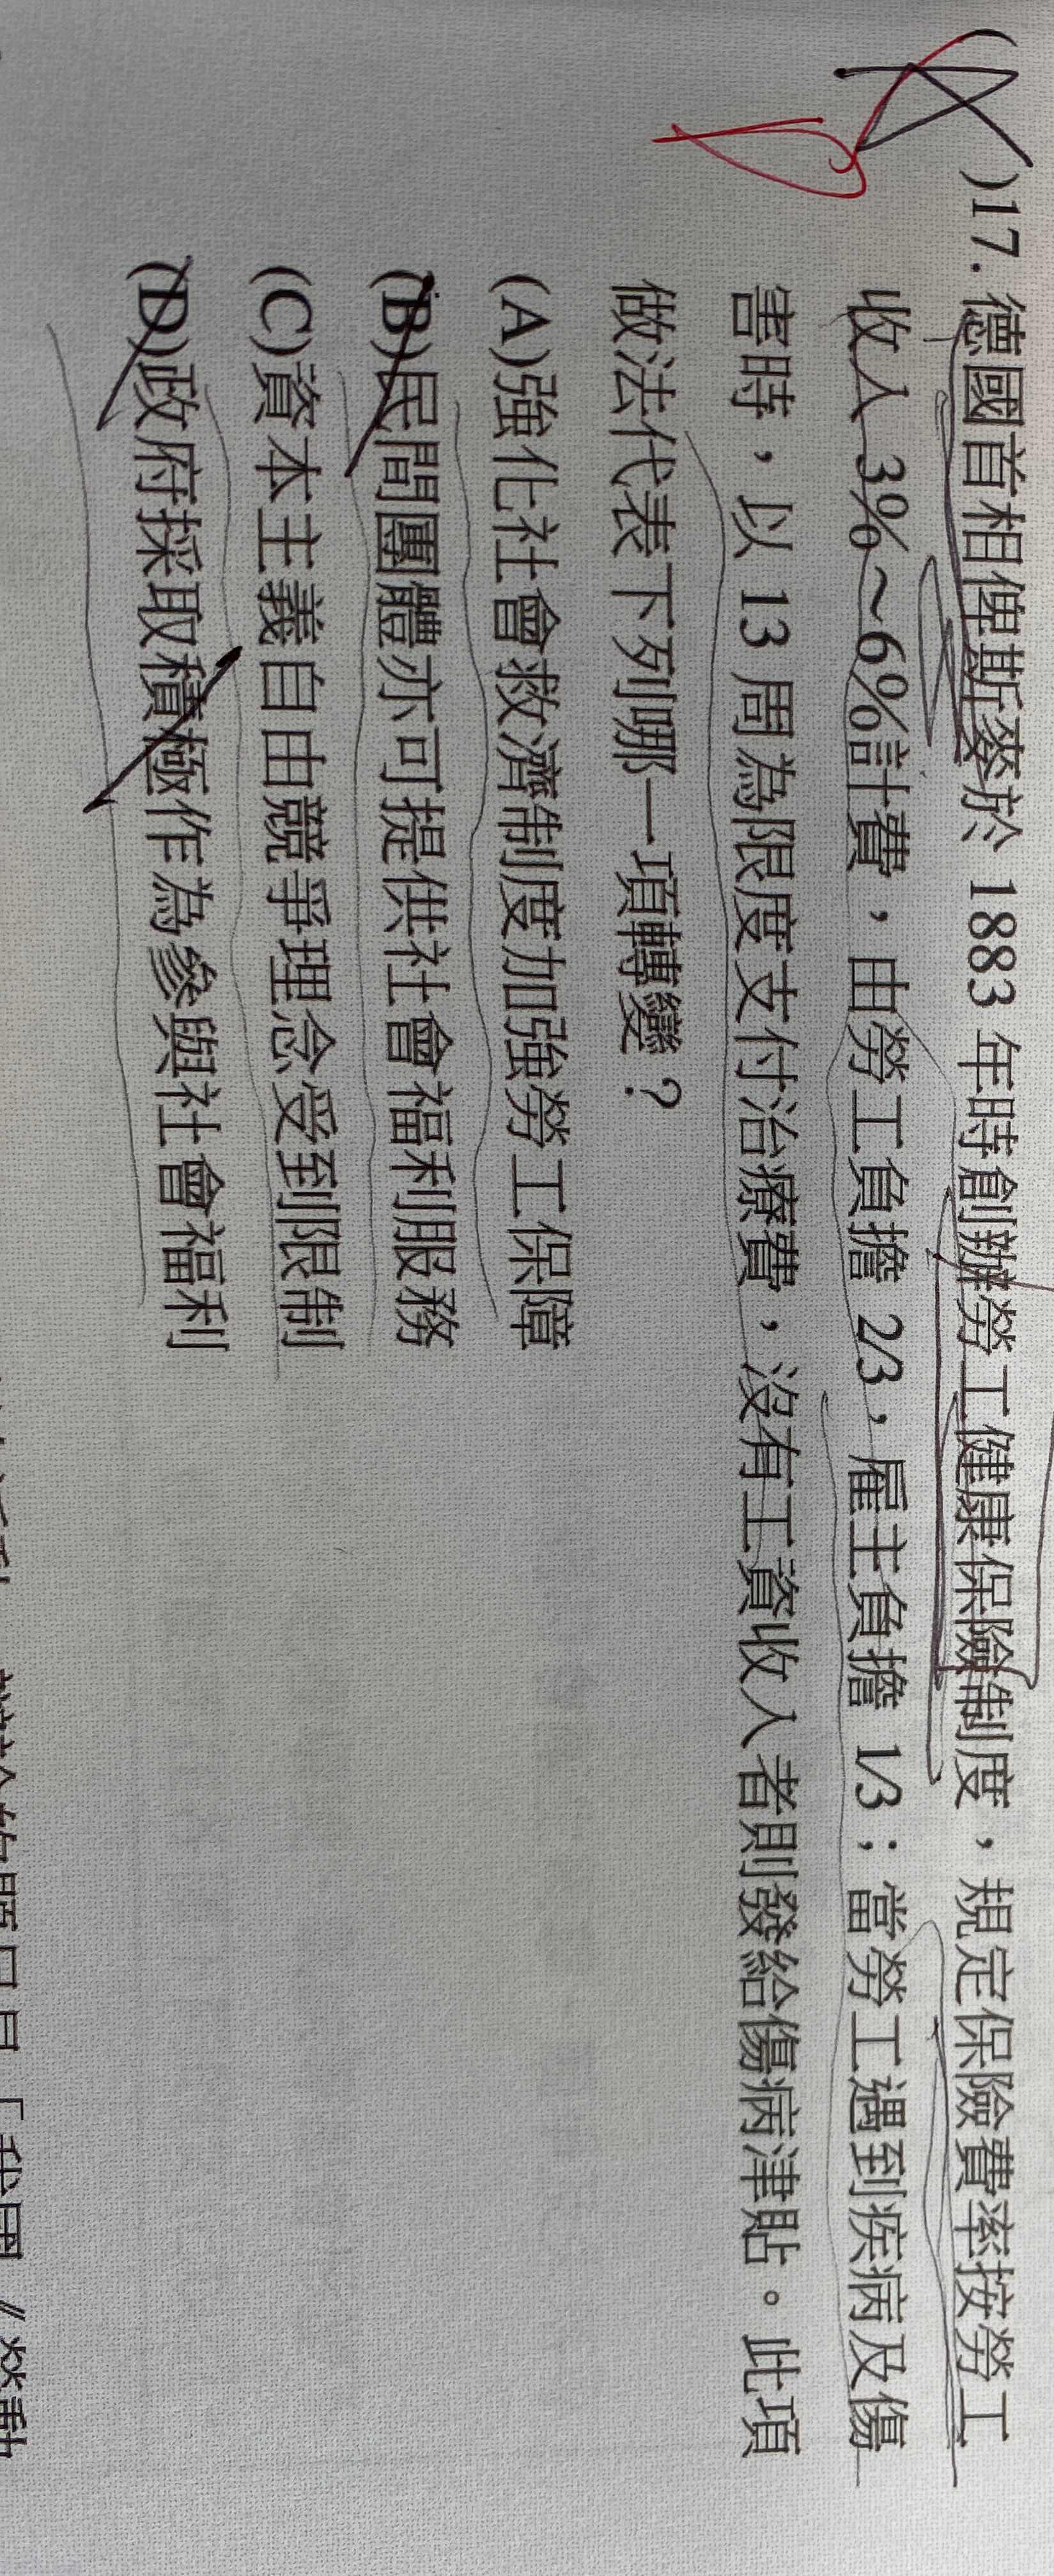 ( )17.德國首相俾斯麥於 1883 年時創辦勞工健康保險制度，規定保險費率按勞工
收入 3%～6%計費，由勞工負擔 2/3，雇主負擔 1/3；當勞工遇到疾病及傷
害時，以 13 周為限度支付治療費，沒有工資收入者則發給傷病津貼。此項
做法代表下列哪一項轉變？
(A)強化社會救濟制度加強勞工保障
(B)民間團體亦可提供社會福利服務
(C)資本主義自由競爭理念受到限制
(D)政府採取積極作為參與社會福利